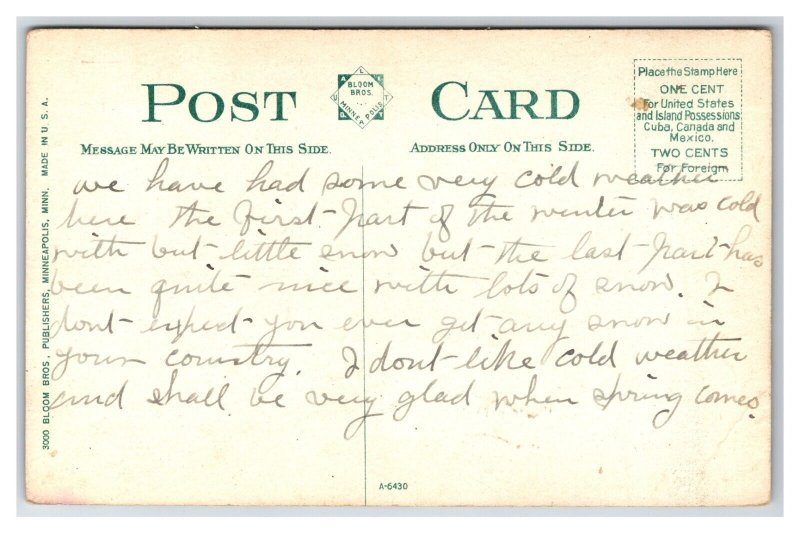 POST CARD
BLOOM BROS.
MINNEAPOLIS
MESSAGE MAY BE WRITTEN ON THIS SIDE.
ADDRESS ONLY ON THIS SIDE.
Place the Stamp Here
ONE CENT
For United States
and Island Possessions
Cuba, Canada and
Mexico.
TWO CENTS
For Foreign
3000 BLOOM BROS, PUBLISHERS, MINNEAPOLIS, MINN. MADE IN U.S.A.
we have had some very cold weather
here the first part of the winter was cold
with but little snow but the last part has
been quite nice with lots of snow. I
dont expect you ever get any snow in
your country. I dont like cold weather
and shall be very glad when spring comes.
A-6430